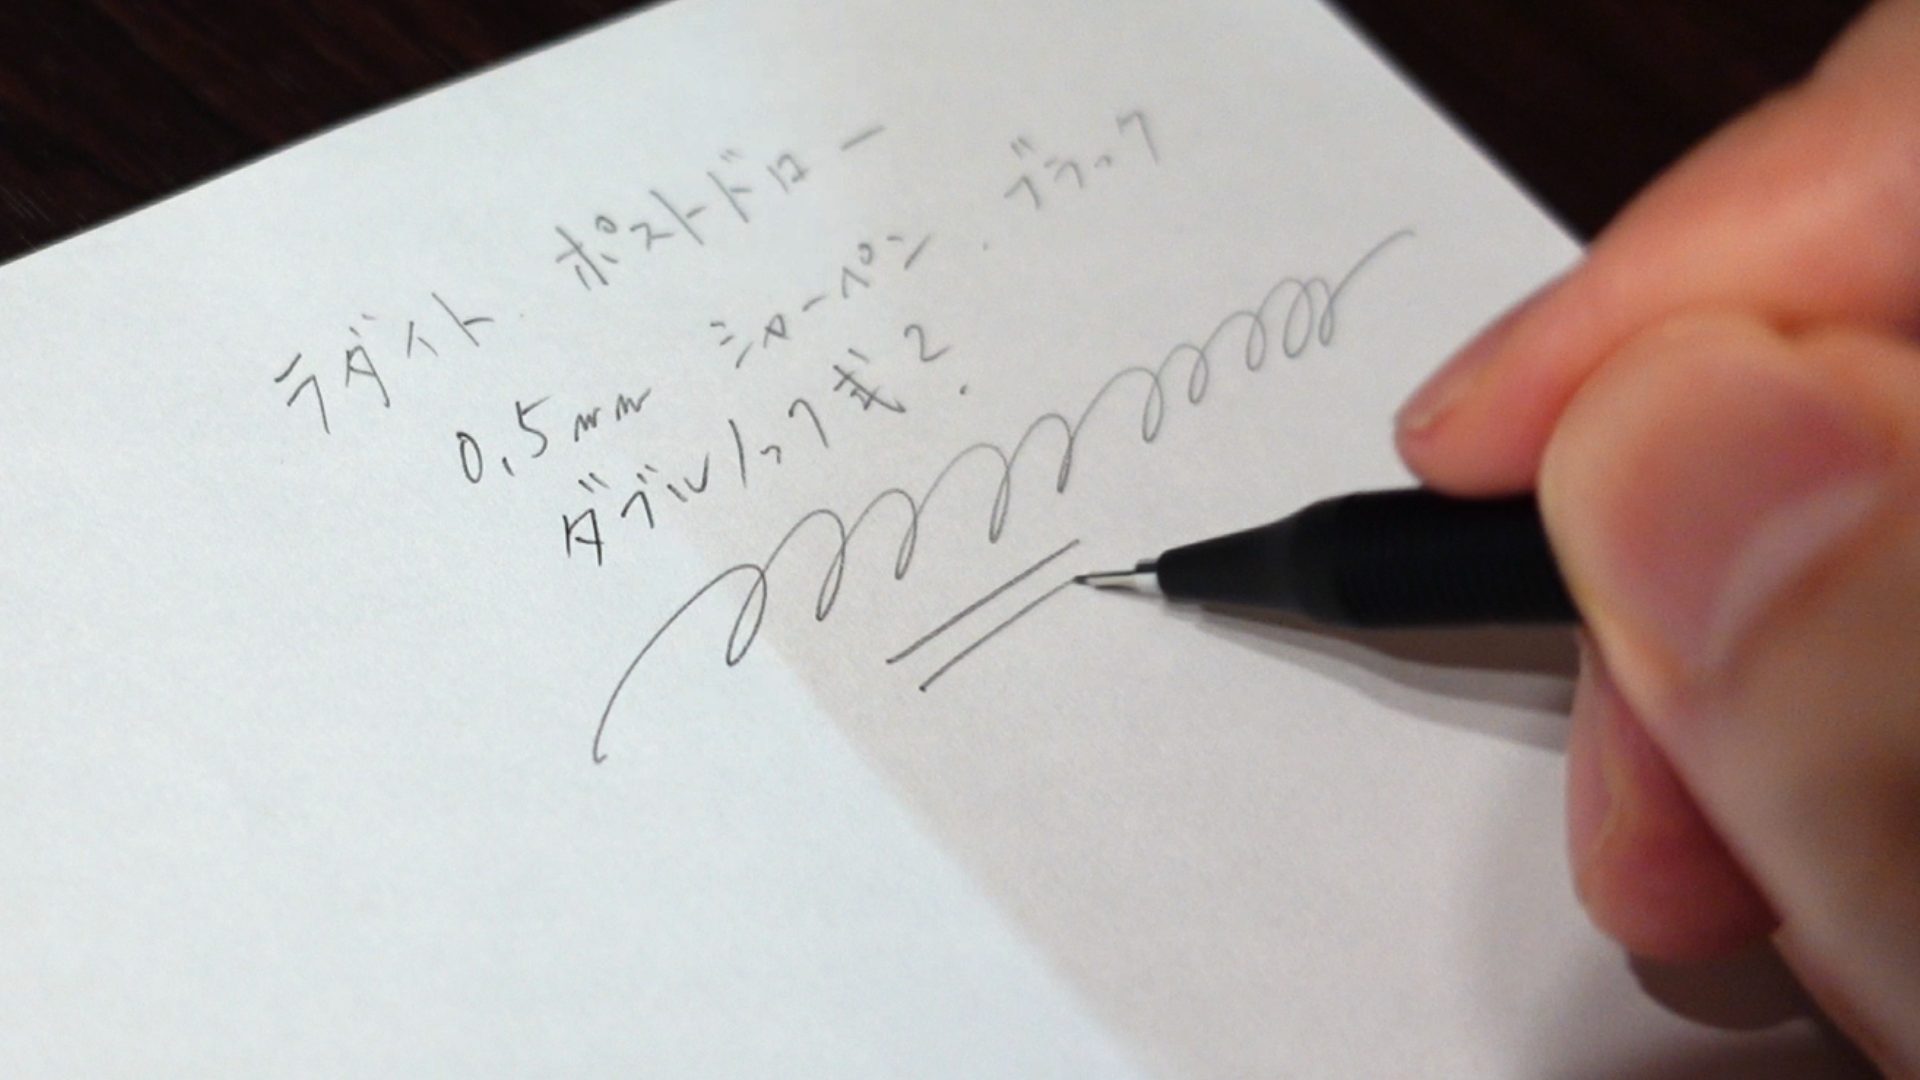 ラダイト ポストドロー
0.5mm シャーペン.ブラック
ダブルノック式?